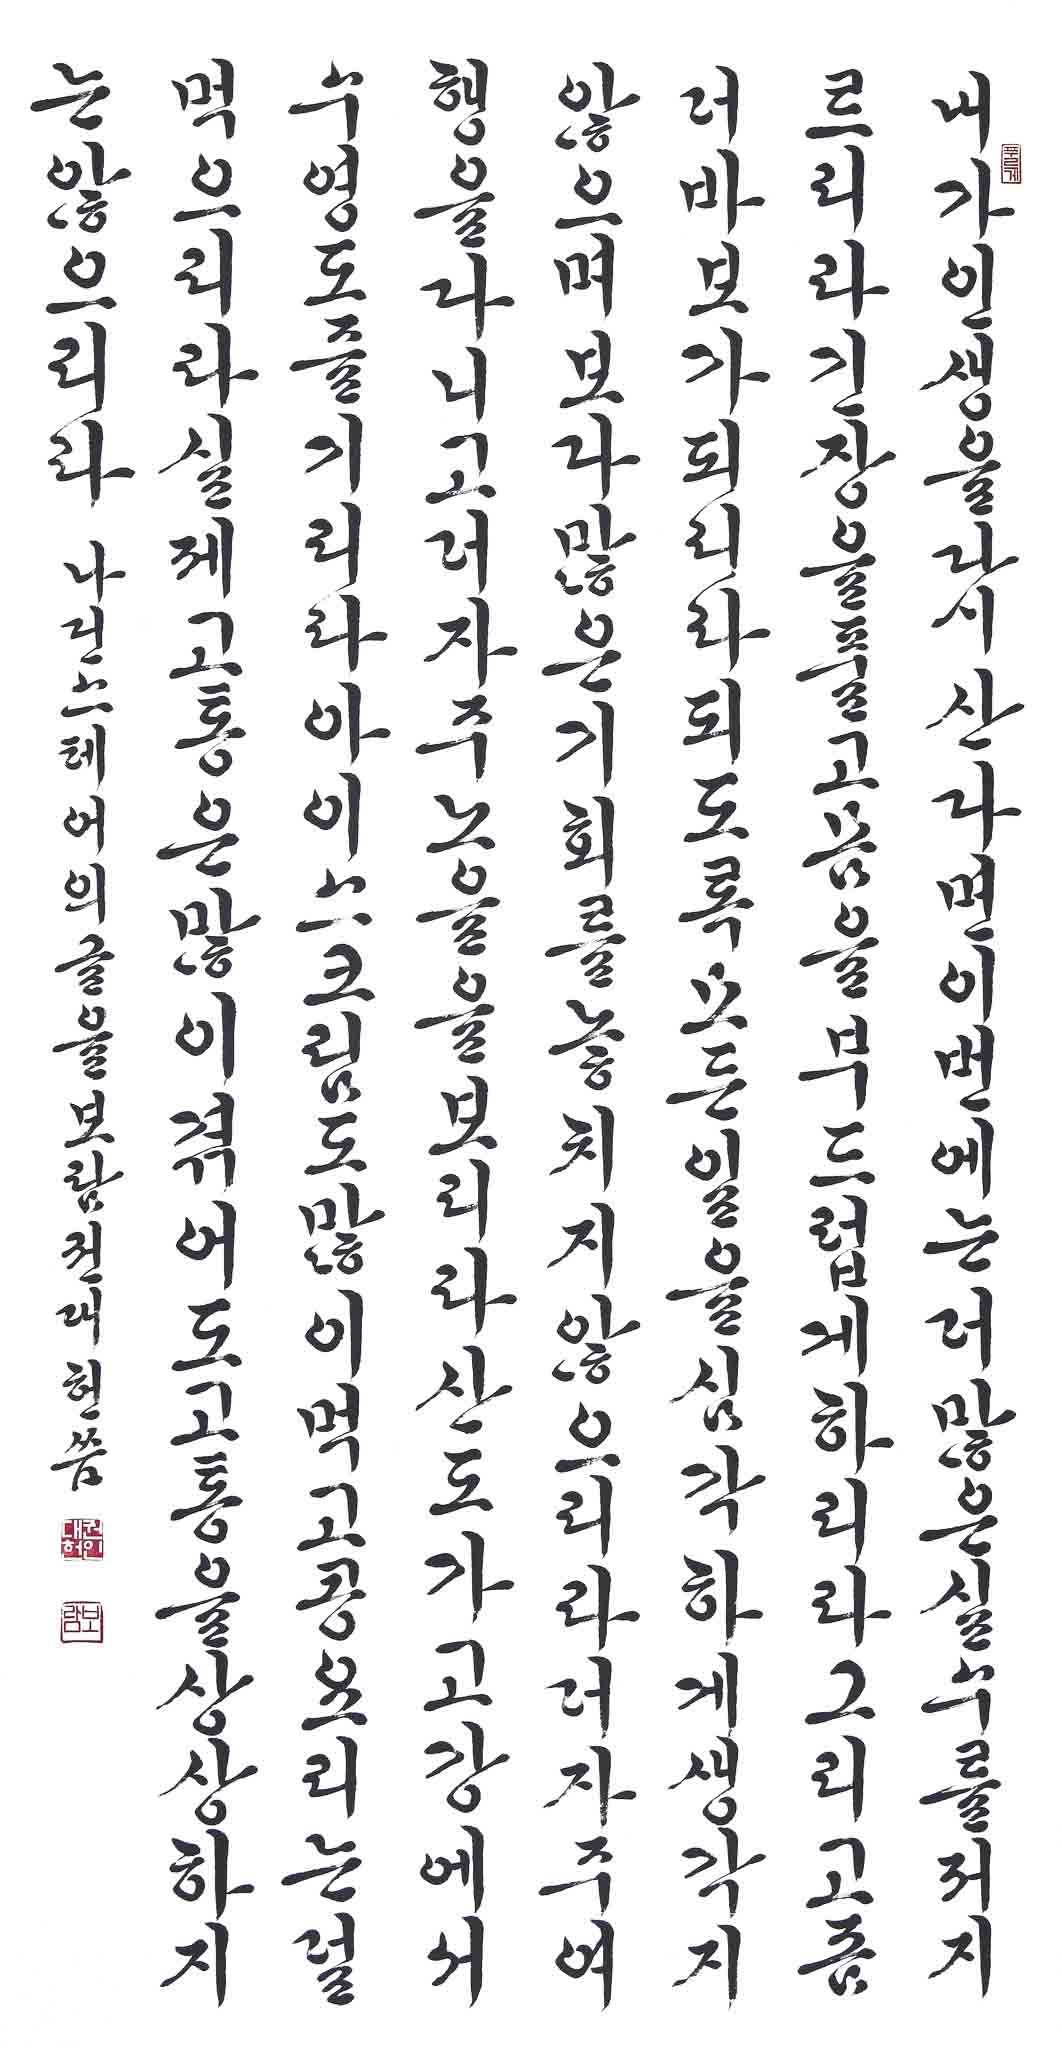 푸르게
내가인생을다시산다면이번에는더많은실수를저지
르리라긴장을풀고몸을부드럽게하리라그리고좀
더바보가되리라되도록모든일을심각하게생각지
않으며보다많은기회를놓치지않으리라더자주여
행을다니고더자주노을을보리라산도가고강에서
수영도즐기리라아이스크림도많이먹고콩요리는덜
먹으리라실제고통은많이겪어도고통을상상하지
는않으리라 나딘스테어의글을보람권대현씀
보람